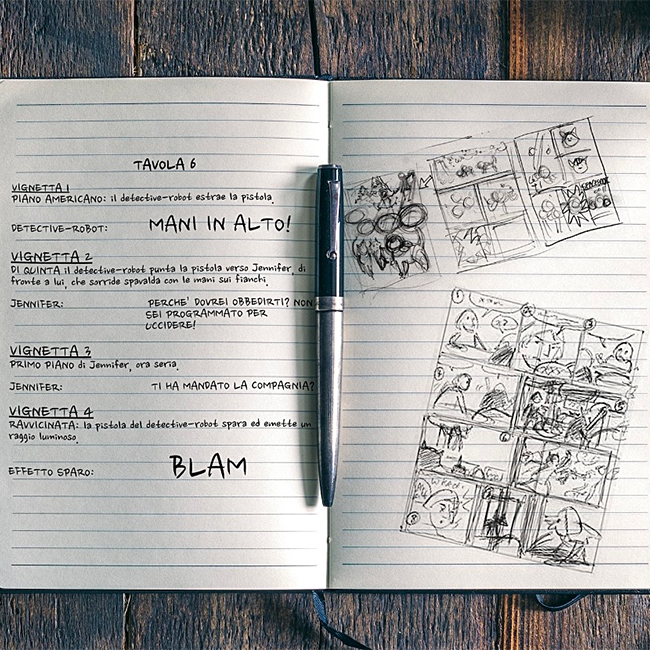 TAVOLA 6
VIGNETTA 1
PIANO AMERICANO: il detective-robot estrae la pistola.
DETECTIVE-ROBOT: MANI IN ALTO!
VIGNETTA 2
DI QUINTA il detective-robot punta la pistola verso Jennifer, di
fronte a lui, che sorride spavalda con le mani sui fianchi.
JENNIFER: PERCHE' DOVREI OBBEDIRTI? NON
SEI PROGRAMMATO PER
UCCIDERE!
VIGNETTA 3
PRIMO PIANO di Jennifer, ora seria.
JENNIFER: TI HA MANDATO LA COMPAGNIA?
VIGNETTA 4
RAVVICINATA: la pistola del detective-robot spara ed emette un
raggio luminoso.
EFFETTO SPARO: BLAM